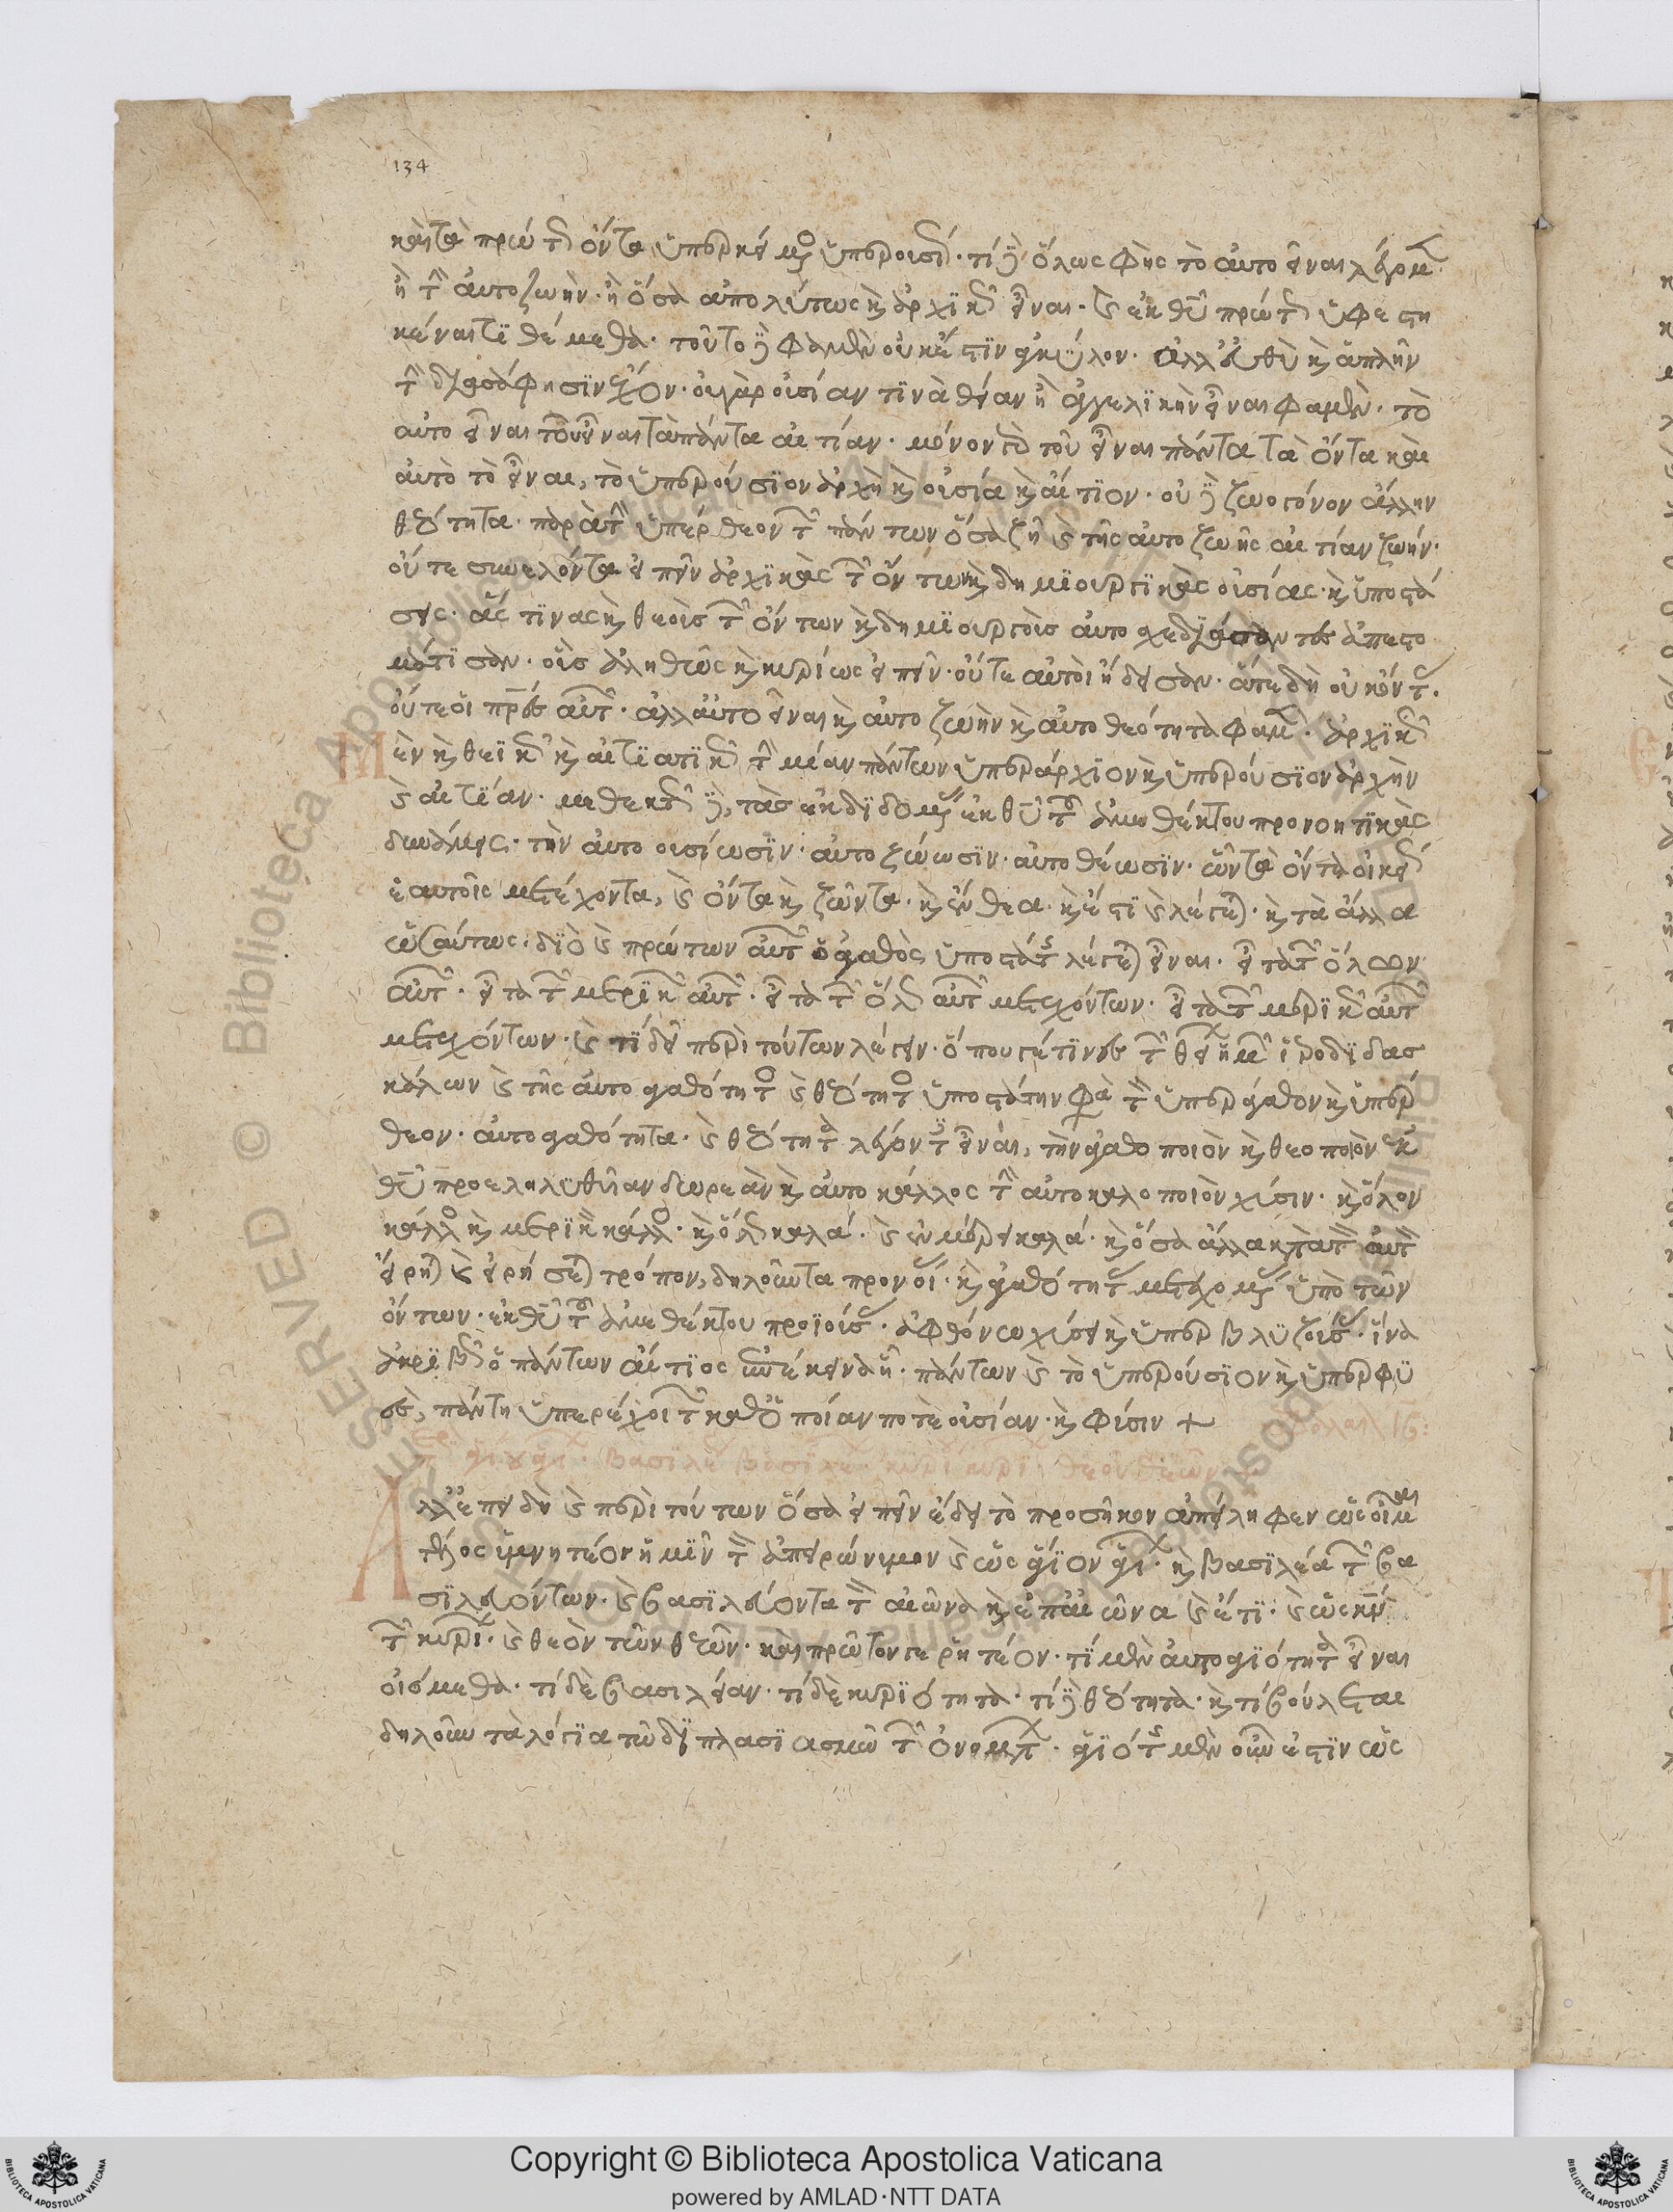 134
καὶ τὰ πρώτως ὄντα ὑπερκείμενος ὑπερουσίως· τί δὲ ὅλως φὴς τὸ αὐτοεῖναι λέγομεν·
ἢ τὴν αὐτοζωήν· ἢ ὅσα ἀπολύτως καὶ ἀρχικῶς εἶναι· καὶ ἐκ θεοῦ πρώτως ὑφεστη
κέναι τιθέμεθα· τοῦτο δὲ φαμὲν οὐκ ἔστιν ἀγκύλον· ἀλλ' εὐθὺ καὶ ἁπλῆν
τὴν διασάφησιν ἔχον· οὐ γὰρ οὐσίαν τινὰ θείαν ἢ ἀγγελικὴν εἶναι φαμὲν· τὸ
αὐτοεῖναι τοῦ εἶναι τὰ πάντα αἰτίαν· μόνον γὰρ τοῦ εἶναι πάντα τὰ ὄντα καὶ
αὐτὸ τὸ εἶναι, τὸ ὑπερούσιον ἀρχὴ καὶ οὐσία καὶ αἴτιον· οὐ δὲ ζωογόνον ἄλλην
θεότητα· παρὰ τὴν ὑπέρθεον τῶν πάντων ὅσα ζῇ καὶ τῆς αὐτοζωῆς αἰτίαν ζωήν·
οὔτε συνελόντα εἰπεῖν ἀρχικὰς τῶν ὄντων καὶ δημιουργικὰς οὐσίας· καὶ ὑποστά
σεις· ἅς τινας καὶ θεοὺς τῶν ὄντων καὶ δημιουργοὺς αὐτοσχεδιάσαντες ἀπεστο
μάτισαν· οὓς ἀληθῶς καὶ κυρίως εἰπεῖν· οὔτε αὐτοὶ ᾔδεισαν· ἅτε δὴ οὐκ ὄντας·
οὔτε οἱ πατέρες αὐτῶν· ἀλλ' αὐτοεῖναι καὶ αὐτοζωὴν καὶ αὐτοθεότητα φαμὲν· ἀρχικῶς
μὲν καὶ θεϊκῶς καὶ αἰτιατικῶς τὴν μίαν πάντων ὑπεράρχιον καὶ ὑπερούσιον ἀρχὴν
καὶ αἰτίαν· μεθεκτῶς δὲ, τὰς ἐκδιδομένας ἐκ θεοῦ τοῦ ἀμεθέκτου προνοητικὰς
δυνάμεις· τὴν αὐτοουσίωσιν· αὐτοζώωσιν· αὐτοθέωσιν· ὧν τὰ ὄντα οἰκείως
ἑαυτοῖς μετέχοντα, καὶ ὄντα καὶ ζῶντα· καὶ ἔνθεα· καὶ ἔστι καὶ λέγεται· καὶ τὰ ἄλλα
ὡσαύτως· διὸ καὶ πρώτων αὐτῶν ὁ ἀγαθὸς ὑποστάτης λέγεται εἶναι· εἶτα τῶν ὅλων
αὐτῶν· εἶτα τῶν μερικῶν αὐτῶν· εἶτα τῶν ὅλως αὐτῶν μετεχόντων· εἶτα τῶν μερικῶς αὐτῶν
μετεχόντων· καὶ τί δεῖ περὶ τούτων λέγειν· ὅπου γέ τινες τῶν θείων ἡμῶν ἱεροδιδασ
κάλων καὶ τῆς αὐτοαγαθότητος καὶ θεότητος ὑποστάτην φασὶ τὸν ὑπεράγαθον καὶ ὑπέρ
θεον· αὐτοαγαθότητα· καὶ θεότητα λέγοντες εἶναι, τὴν ἀγαθοποιὸν καὶ θεοποιὸν ἐκ
θεοῦ προεληλυθυῖαν δωρεὰν καὶ αὐτοκάλλος τὴν αὐτοκαλοποιὸν χύσιν· καὶ ὅλον
κάλλος καὶ μερικὸν κάλλος· καὶ ὅλως καλά· καὶ ἐν μέρει καλά· καὶ ὅσα ἄλλα κατὰ τὸν αὐτὸν
εἴρηται καὶ εἰρήσεται τρόπον, δηλοῦντα προνοίας· καὶ ἀγαθότητας μετεχομένας ὑπὸ τῶν
ὄντων· ἐκ θεοῦ τοῦ ἀμεθέκτου προϊούσας· ἀφθόνῳ χύσει καὶ ὑπερβλυζούσας· ἵνα
ἀκριβῶς ὁ πάντων αἴτιος ἐπέκεινα ᾖ· πάντων καὶ τὸ ὑπερούσιον καὶ ὑπερφυ
ὲς, πάντη ὑπερέχοι τῶν καθ' ὁποίαν ποτὲ οὐσίαν· καὶ φύσιν +
περὶ ἁγίου ἁγίων· βασιλέως βασιλέων· κυρίου κυρίων· θεοῦ θεῶν
Ἀλλ' ἐπειδὴ καὶ περὶ τούτων ὅσα εἰπεῖν ἔδει τὸ προσῆκον ἀπείληφεν ὡς οἶμαι
τέλος ὑμνητέον ἡμῖν τὸν ἀπειρώνυμον καὶ ὡς ἅγιον ἁγίων· καὶ βασιλέα τῶν βα
σιλευόντων· καὶ βασιλεύοντα τὸν αἰῶνα καὶ ἐπ' αἰῶνα καὶ ἔτι· καὶ ὡς κύριον
τῶν κυρίων· καὶ θεὸν τῶν θεῶν· καὶ πρῶτον γε ῥητέον· τί μὲν αὐτοαγιότητα εἶναι
οἰόμεθα· τί δὲ βασιλείαν· τί δὲ κυριότητα· τί δὲ θεότητα· καὶ τί βούλεται
δηλοῦν τὰ λόγια τῷ διπλασιασμῷ τῶν ὀνομάτων· ἁγιότης μὲν οὖν ἐστιν ὡς
Copyright © Biblioteca Apostolica Vaticana
powered by AMLAD·NTT DATA